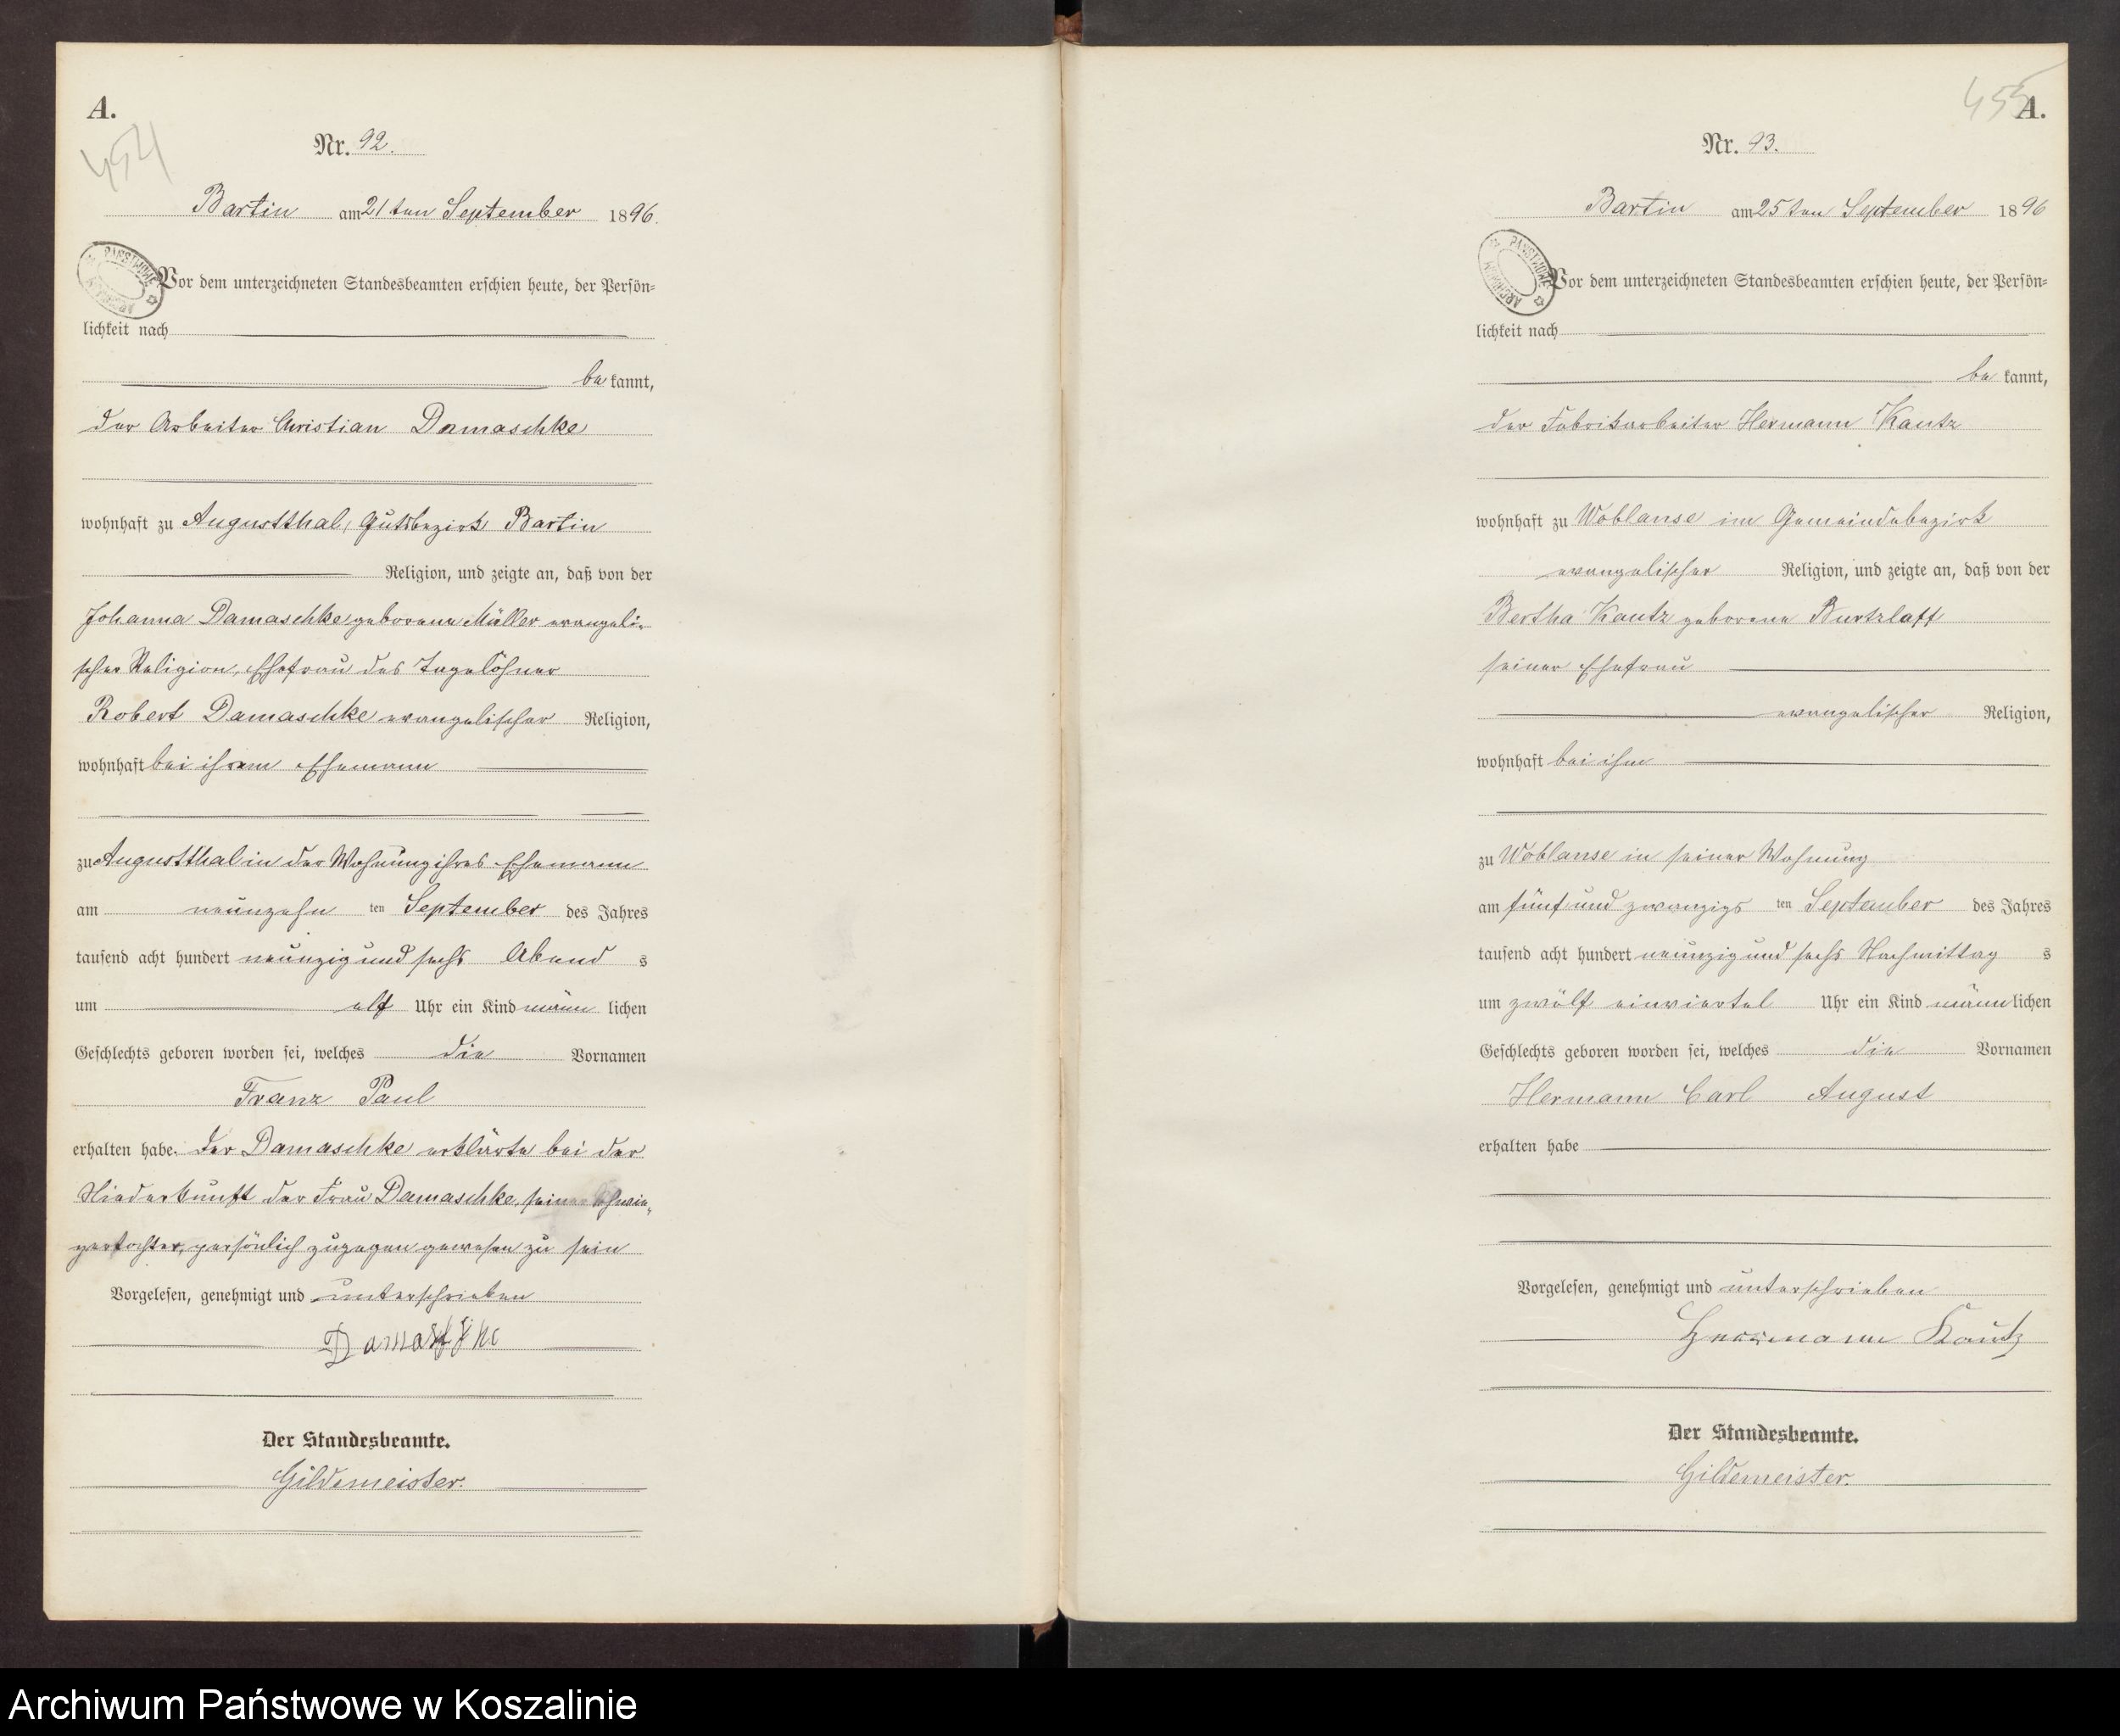 A.
454
Nr. 92.
Bartin am 21ten September 1896.
Vor dem unterzeichneten Standesbeamten erschien heute, der Persön=
lichkeit nach
bekannt,
der Arbeiter Christian Damaschke
wohnhaft zu Augustthal, Gutsbezirk Bartin
Religion, und zeigte an, daß von der
Johanna Damaschke geborene Müller evangeli-
scher Religion, Ehefrau des Tagelöhner
Robert Damaschke evangelischer Religion,
wohnhaft bei ihrem Ehemann
zu Augustthal in der Wohnung ihres Ehemann
am neunzehn ten September des Jahres
tausend acht hundert neunzig und sechs Abend s
um elf Uhr ein Kind männ lichen
Geschlechts geboren worden sei, welches die Vornamen
Franz Paul
erhalten habe. Der Damaschke erklärte bei der
Niederkunft der Frau Damaschke, seiner Schwie-
gertochter, persönlich zugegen gewesen zu sein
Vorgelesen, genehmigt und unterschrieben
Damaschke
Der Standesbeamte.
Gildemeister.
455
A.
Nr. 93.
Bartin am 25ten September 1896
Vor dem unterzeichneten Standesbeamten erschien heute, der Persön=
lichkeit nach
bekannt,
der Fabrikarbeiter Hermann Kautz
wohnhaft zu Woblanse im Gemeindebezirk
evangelischer Religion, und zeigte an, daß von der
Bertha Kautz geborene Burtzlaff
seiner Ehefrau
evangelischer Religion,
wohnhaft bei ihm
zu Woblanse in seiner Wohnung
am fünf und zwanzigs ten September des Jahres
tausend acht hundert neunzig und sechs Nachmittag s
um zwölf einviertel Uhr ein Kind männlichen
Geschlechts geboren worden sei, welches die Vornamen
Hermann Carl August
erhalten habe
Vorgelesen, genehmigt und unterschrieben
Herrmann Kautz
Der Standesbeamte.
Gildemeister.
Archiwum Państwowe w Koszalinie